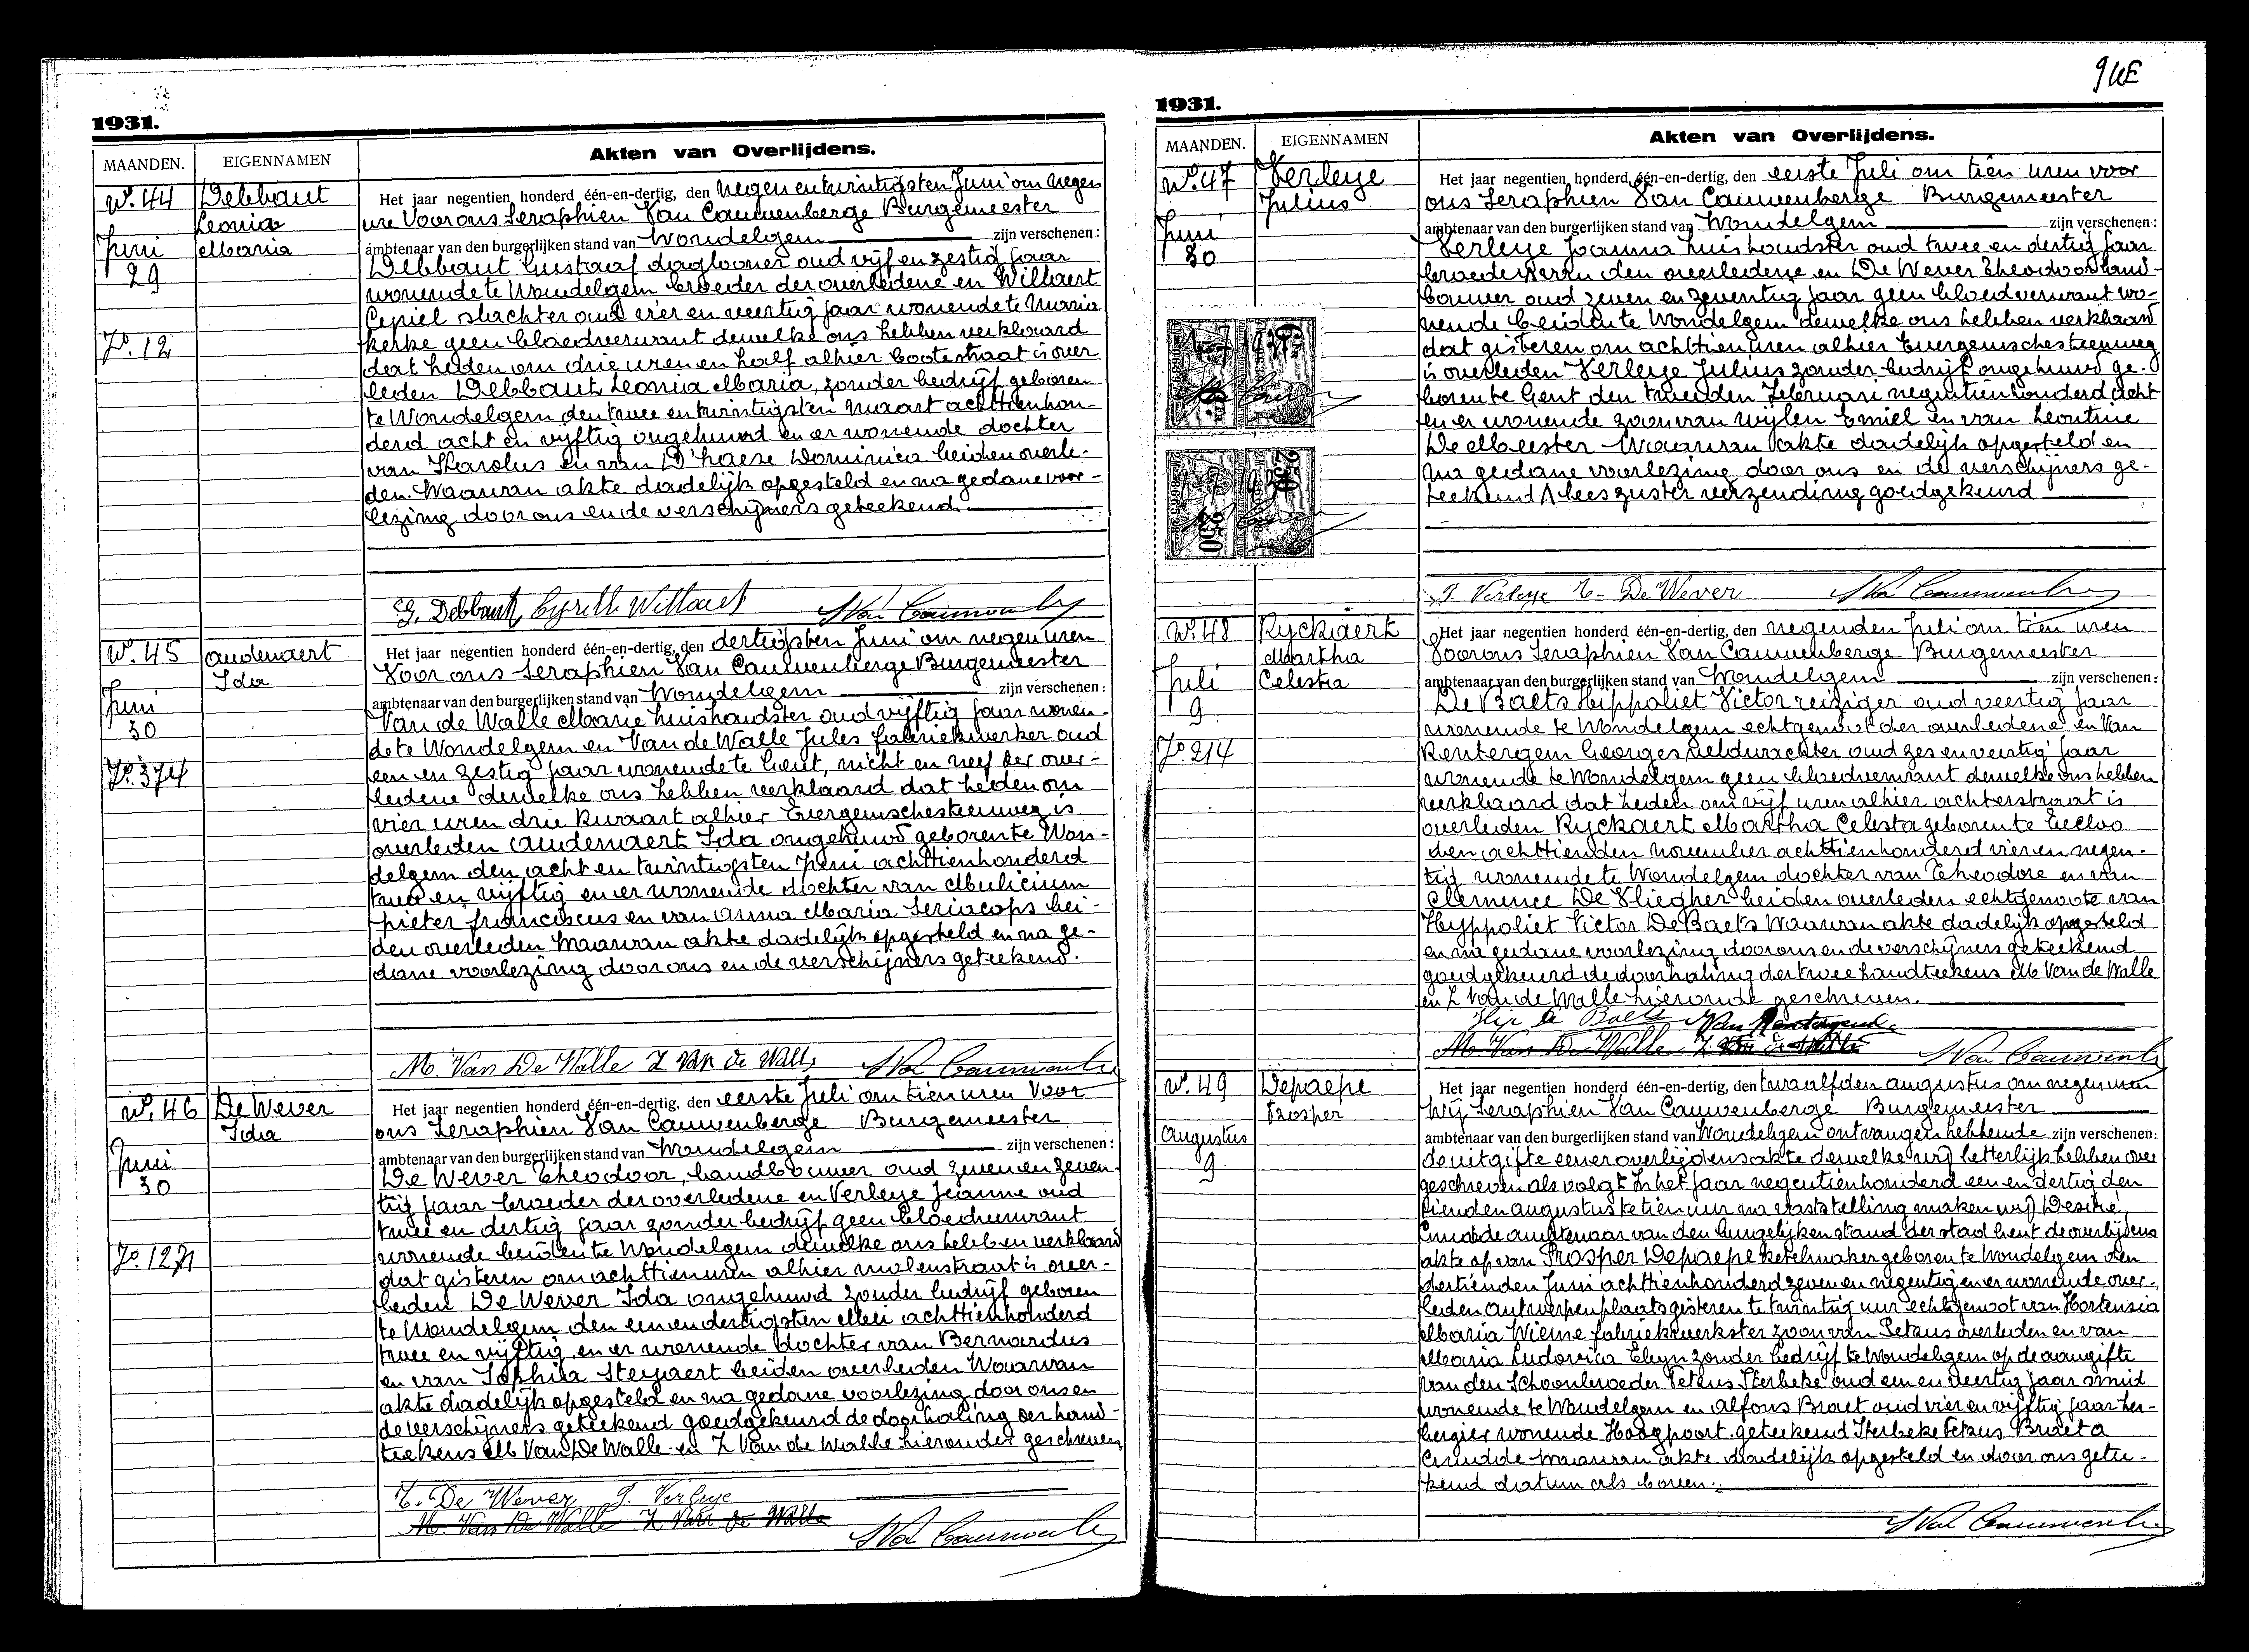 1931.
MAANDEN. EIGENNAMEN Akten van Overlijdens.
N°. 44 Debbaut Leonia Maria
Juni 29
F°. 12
Het jaar negentien honderd één-en-dertig, den negen en twintigsten Juni om negen
ure Voor ons Seraphien Van Cauwenberge Burgemeester
ambtenaar van den burgerlijken stand van Wondelgem zijn verschenen:
Debbaut Gustaaf daglooner oud vijf en zestig jaar
wonende te Wondelgem broeder der overledene en Willaert
Ceriel slachter oud vier en veertig jaar wonende te Maria
kerke geen bloedverwant dewelke ons hebben verklaard
dat heden om drie uren en half alhier Bootestraat is over
leden Debbaut Leonia Maria, zonder bedrijf geboren
te Wondelgem den twee en twintigsten Maart achttienhon-
derd acht en vijftig ongehuwd en er wonende dochter
van Karolus en van D'haese Dominica beiden overle-
den. Waarvan akte dadelijk opgesteld en na gedane voor-
lezing door ons en de verschijners geteekend.
G. Debbaut Cyrille Willaert S Van Cauwenberge
N°. 45 Audenaert Ida
Juni 30
F°. 374
Het jaar negentien honderd één-en-dertig, den dertigsten Juni om negen uren
Voor ons Seraphien Van Cauwenberge Burgemeester
ambtenaar van den burgerlijken stand van Wondelgem zijn verschenen:
Van de Walle Marie huishoudster oud vijftig jaar wonen-
de te Wondelgem en Van de Walle Jules fabriekwerker oud
een en zestig jaar wonende te Gent, nicht en neef der over-
ledene dewelke ons hebben verklaard dat heden om
vier uren drie kwaart alhier Evergemschesteenweg is
overleden Audenaert Ida ongehuwd geboren te Won-
delgem den acht en twintigsten Juni achttienhonderd
twee en vijftig en er wonende dochter van
pieter franciscus en van Anna Maria Seriacops bei-
den overleden Waarvan akte dadelijk opgesteld en na ge-
dane voorlezing door ons en de verschijners geteekend.
M. Van De Walle Z Van de Walle S Van Cauwenberge
N°. 46 De Wever Ida
Juni 30
F°. 1271
Het jaar negentien honderd één-en-dertig, den eerste Juli om tien uren Voor
ons Seraphien Van Cauwenberge Burgemeester
ambtenaar van den burgerlijken stand van Wondelgem zijn verschenen:
De Wever Theodoor, landbouwer oud zeven en zeven-
tig jaar broeder der overledene en Verleye Jeanne oud
twee en dertig jaar zonder bedrijf geen bloedverwant
wonende beiden te Wondelgem dewelke ons hebben verklaard
dat gisteren om achttien uren alhier molenstraat is over-
leden De Wever Ida ongehuwd zonder bedrijf geboren
te Wondelgem den een en dertigsten Mei achttienhonderd
twee en vijftig en er wonende dochter van Bernardus
en van Sophia Steyaert beiden overleden Waarvan
akte dadelijk opgesteld en na gedane voorlezing door ons en
de verschijners geteekend goedgekeurd de doorhaling der hand-
teekens M Van De Walle en Z Van de Walle hieronder geschreven
T. De Wever J. Verleye
M. Van De Walle Z Van de Walle S Van Cauwenberge
1931.
MAANDEN. EIGENNAMEN Akten van Overlijdens.
N°. 47 Verleye Julius
Juni 30
Het jaar negentien honderd één-en-dertig, den eerste Juli om tien uren voor
ons Seraphien Van Cauwenberge Burgemeester
ambtenaar van den burgerlijken stand van Wondelgem zijn verschenen:
Verleye Joanna huishoudster oud twee en dertig jaar
broeder van den overledene en De Wever Theodoor land-
bouwer oud zeven en zeventig jaar geen bloedverwant wo-
nende beiden te Wondelgem dewelke ons hebben verklaard
dat gisteren om achttien uren alhier Evergemschesteenweg
is overleden Verleye Julius zonder bedrijf ongehuwd ge-
boren te Gent den tweeden Februari negentienhonderd acht
en er wonende zoon van wijlen Emiel en van Leontine
De Meester Waarvan akte dadelijk opgesteld en
na gedane voorlezing door ons en de verschijners ge-
teekend / lees zuster verzending goedgekeurd
J. Verleye T. De Wever S Van Cauwenberge
N°. 48 Ryckaert Martha Celesta
Juli 9
F°. 214
Het jaar negentien honderd één-en-dertig, den negenden Juli om tien uren
Voor ons Seraphien Van Cauwenberge Burgemeester
ambtenaar van den burgerlijken stand van Wondelgem zijn verschenen:
De Baets Hippoliet Victor reiziger oud veertig jaar
wonende te Wondelgem echtgenoot der overledene en Van
Rentergem Georges veldwachter oud zes en veertig jaar
wonende te Wondelgem geen bloedverwant dewelke ons hebben
verklaard dat heden om vijf uren alhier achterstraat is
overleden Ryckaert Martha Celesta geboren te Eecloo
den achttienden november achttienhonderd vier en negen-
tig wonende te Wondelgem dochter van Theodore en van
Clemence De Vliegher beiden overleden echtgenoote van
Hyppoliet Victor De Baets Waarvan akte dadelijk opgesteld
en na gedane voorlezing door ons en de verschijners geteekend
goedgekeurd de doorhaling der twee handteekens M Van de Walle
en Z Van de Walle hieronder geschreven.
Hip De Baets Van Rentergem
M. Van De Walle Z Van de Walle S Van Cauwenberge
N°. 49 Depaepe Prosper
Augustus 9
Het jaar negentien honderd één-en-dertig, den twaalfden augustus om negen uren
Wij Seraphien Van Cauwenberge Burgemeester
ambtenaar van den burgerlijken stand van Wondelgem ontvangen hebbende zijn verschenen:
de uitgifte eener overlijdensakte dewelke wij letterlijk hebben over
geschreven als volgt In het jaar negentienhonderd een en dertig den
tienden augustus te tien uur na vaststelling maken wij Desiré
ambtenaar van den burgelijken stand der stad Gent de overlijdens
akte op van Prosper Depaepe ketelmaker geboren te Wondelgem den
dertienden Juni achttienhonderd zeven en negentig en er wonende over-
leden Antwerpenplaats gisteren te twintig uur echtgenoot van Hortensia
Maria Wieme fabriekwerkster zoon van Petrus overleden en van
Maria Ludovica Elyn zonder bedrijf te Wondelgem op de aangifte
van den Schoonbroeder Petrus Sterbeke oud een en veertig jaar smid
wonende te Wondelgem en Alfons Braet oud vier en vijftig jaar her-
bergier wonende Hoogpoort geteekend Sterbeke Petrus Braet A
Waarvan akte dadelijk opgesteld en door ons getee-
kend datum als boven.
S Van Cauwenberge